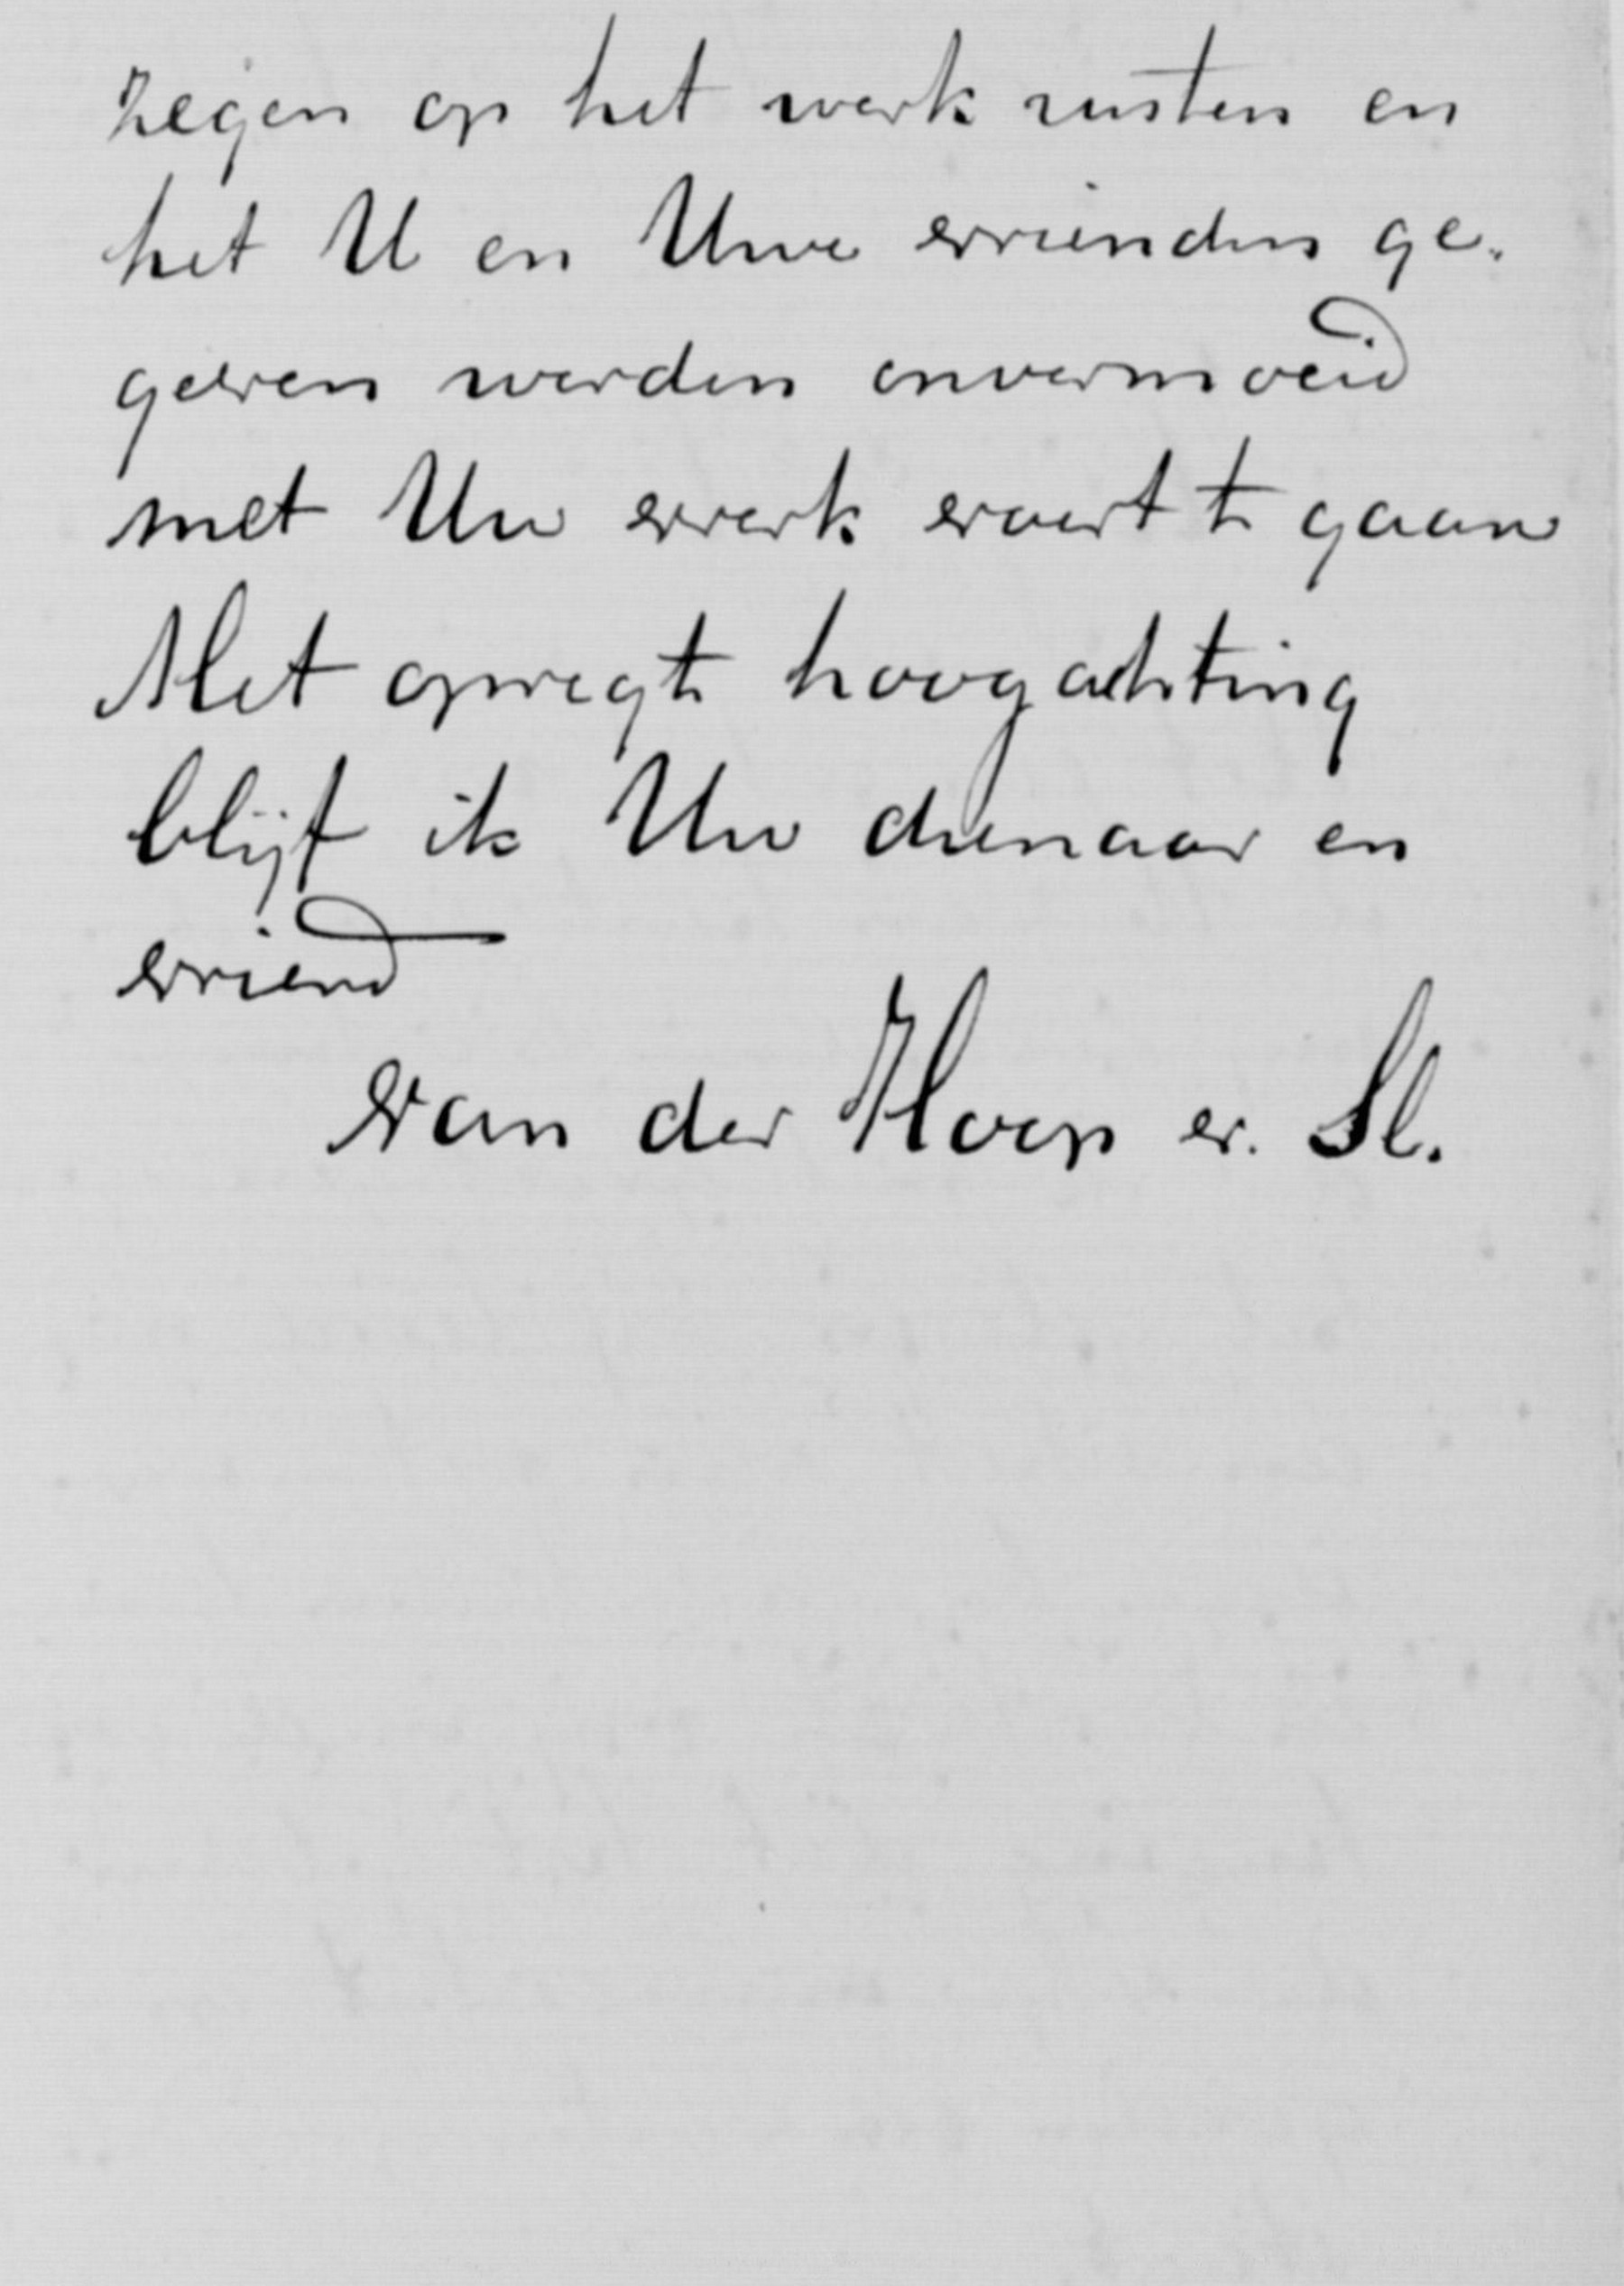 zegen op het werk rusten en
het U en Uwe vrienden ge-
geven worden onvermoeid
met Uw werk voort te gaan
Met opregte hoogachting
blijf ik Uw dienaar en
vriend
van der Hoop v. Sl.